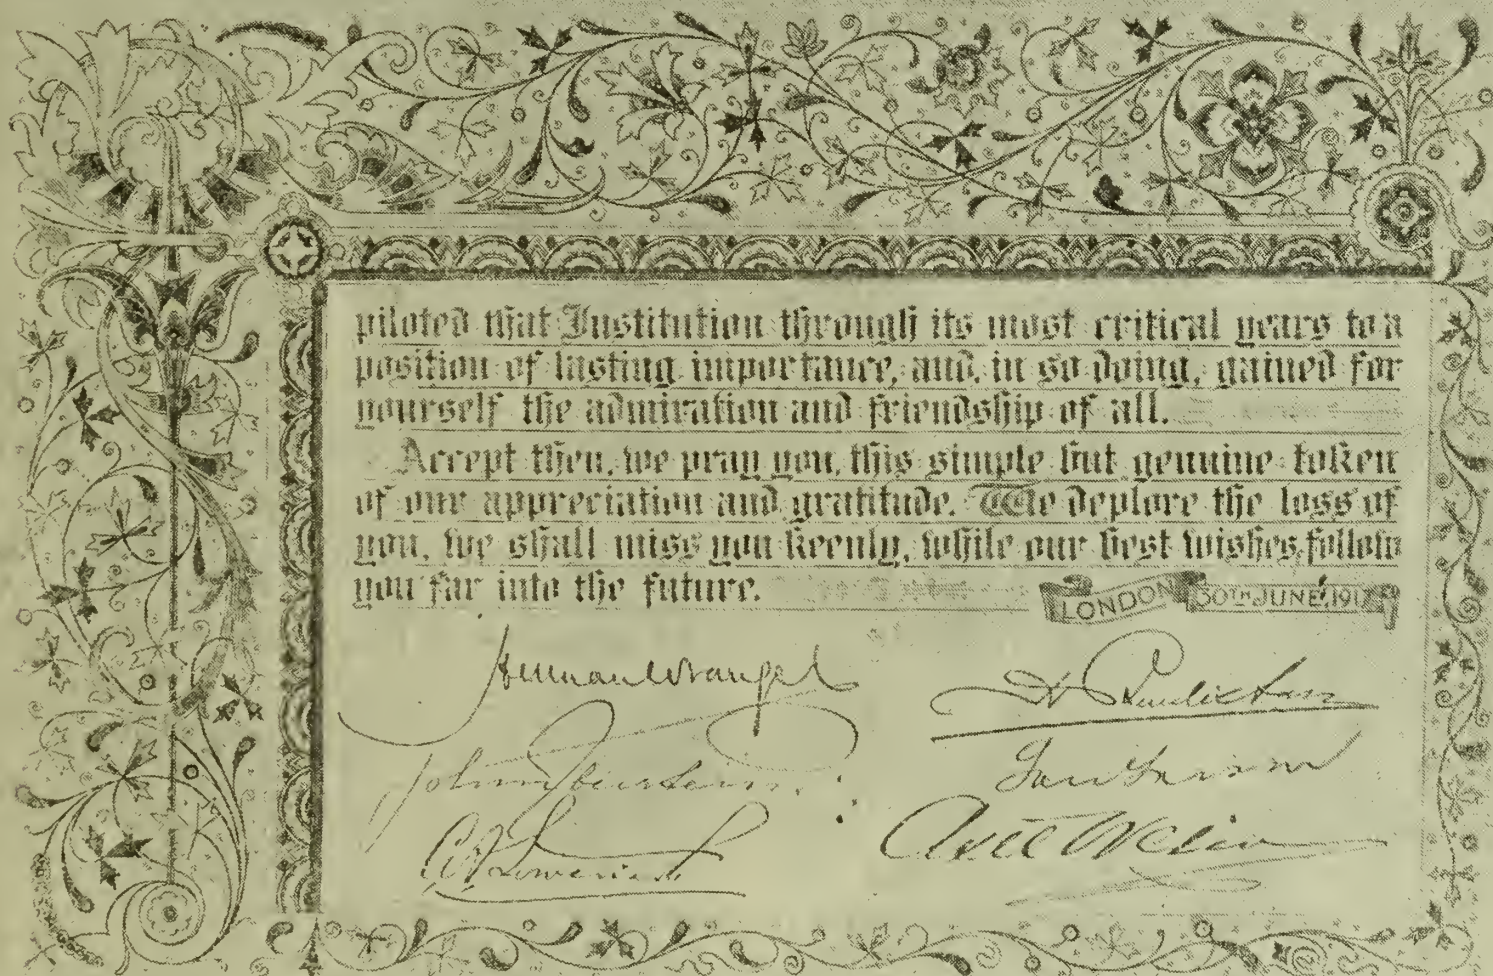 piloted that Institution through its most critical years to a
position of lasting importance, and, in so doing, gained for
yourself the admiration and friendship of all.
Accept then, we pray you, this simple but genuine token
of our appreciation and gratitude. We deplore the loss of
you, we shall miss you keenly, while our best wishes follow
you far into the future.
LONDON 30TH JUNE, 191
Herman Wrangel
John
Axel Welin